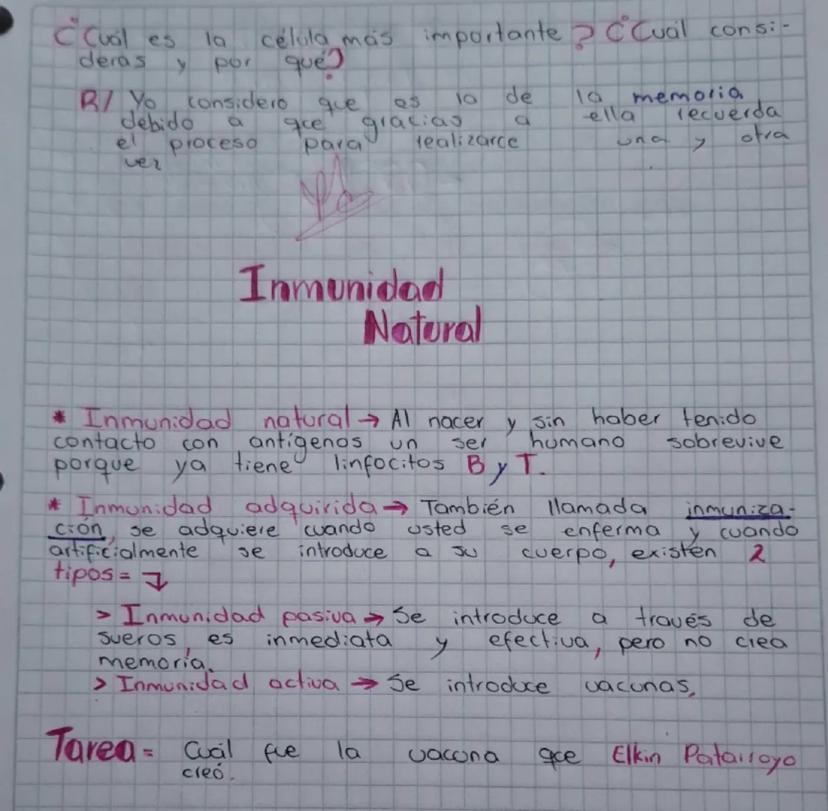 ¿Cuál es la célula más importante? ¿Cuál consi-
deras y por qué?
R/ Yo considero que es la de la memoria
debido a que gracias a ella recuerda
el proceso para realizarce una y otra
vez
Inmunidad
Natural
* Inmunidad natural → Al nacer y sin haber tenido
contacto con antígenos un ser humano sobrevive
porque ya tiene linfocitos B y T.
* Inmunidad adquirida → También llamada inmuniza-
ción, se adquiere cuando usted se enferma y cuando
artificialmente se introduce a su cuerpo, existen 2
tipos = ↴
> Inmunidad pasiva → Se introduce a través de
sueros, es inmediata y efectiva, pero no crea
memoria.
> Inmunidad activa → Se introduce vacunas.
Tarea = Cuál fue la vacuna que Elkin Patarroyo
creó.